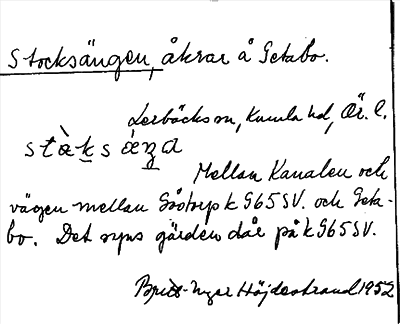 Stocksängen, åkrar å Getabo.
Lerbäcks sn, Kumla hd, Är. l.
stàksáŋa
Mellan Kanalen och
vägen mellan Gåtorp k G65SV. och Geta-
bo. Det syns gärden där på k G65SV.
Britt-Inger Höjdestrand 1952